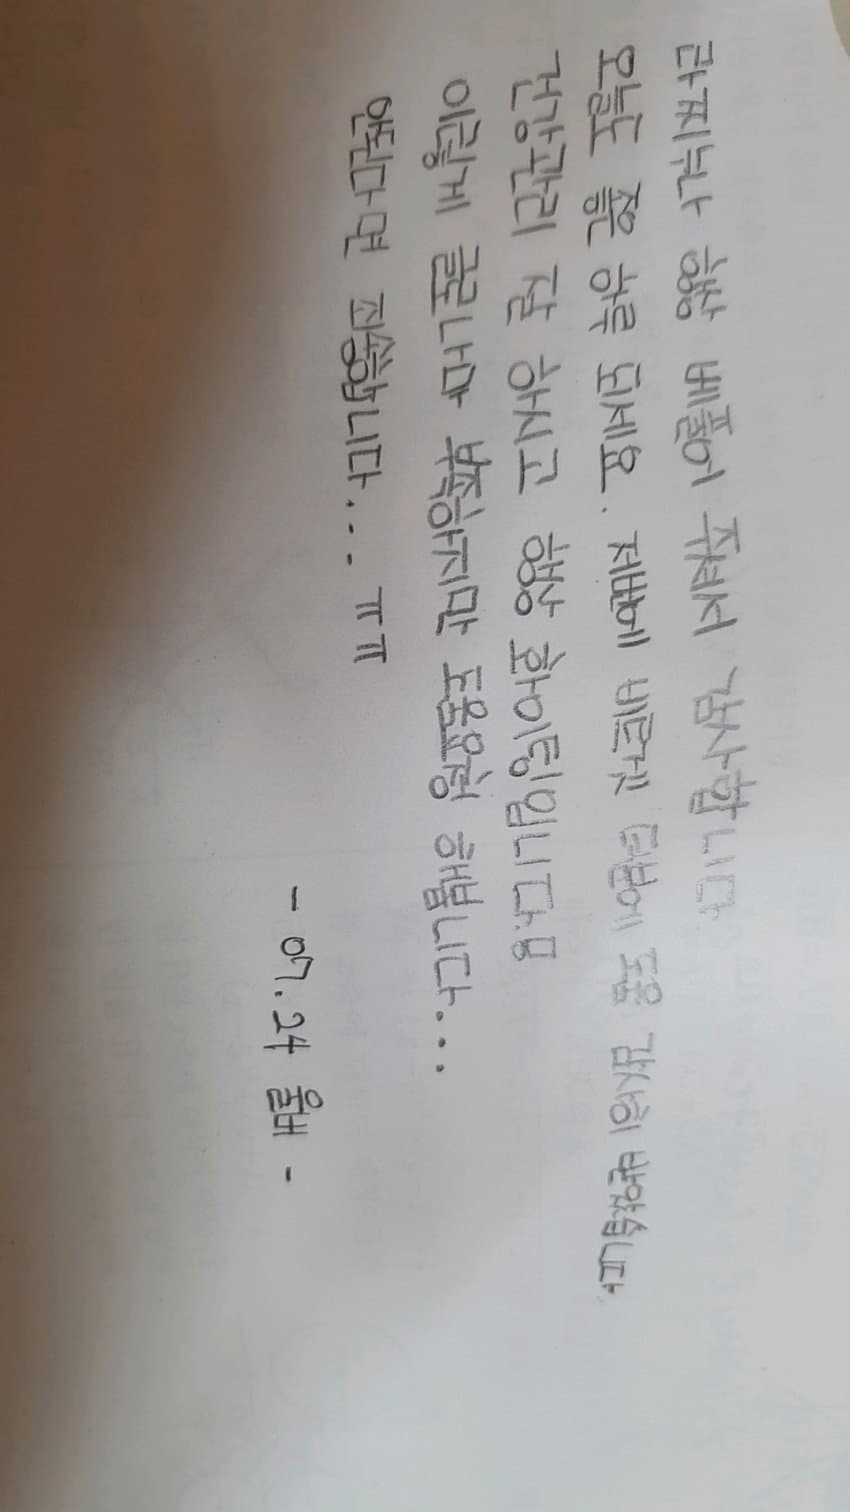 라찌뉴나 항상 베풀어 주셔서 감사합니다
오늘도 좋은 하루 되세요. 저번에 비트건 덕분에 도움 감사히 받았습니다.
건강관리 잘 하시고 항상 화이팅입니다.
이렇게 글로나마 부족하지만 도움요청 해봅니다...
안된다면 죄송합니다... ㅠㅠ
- 07.24 올비 -